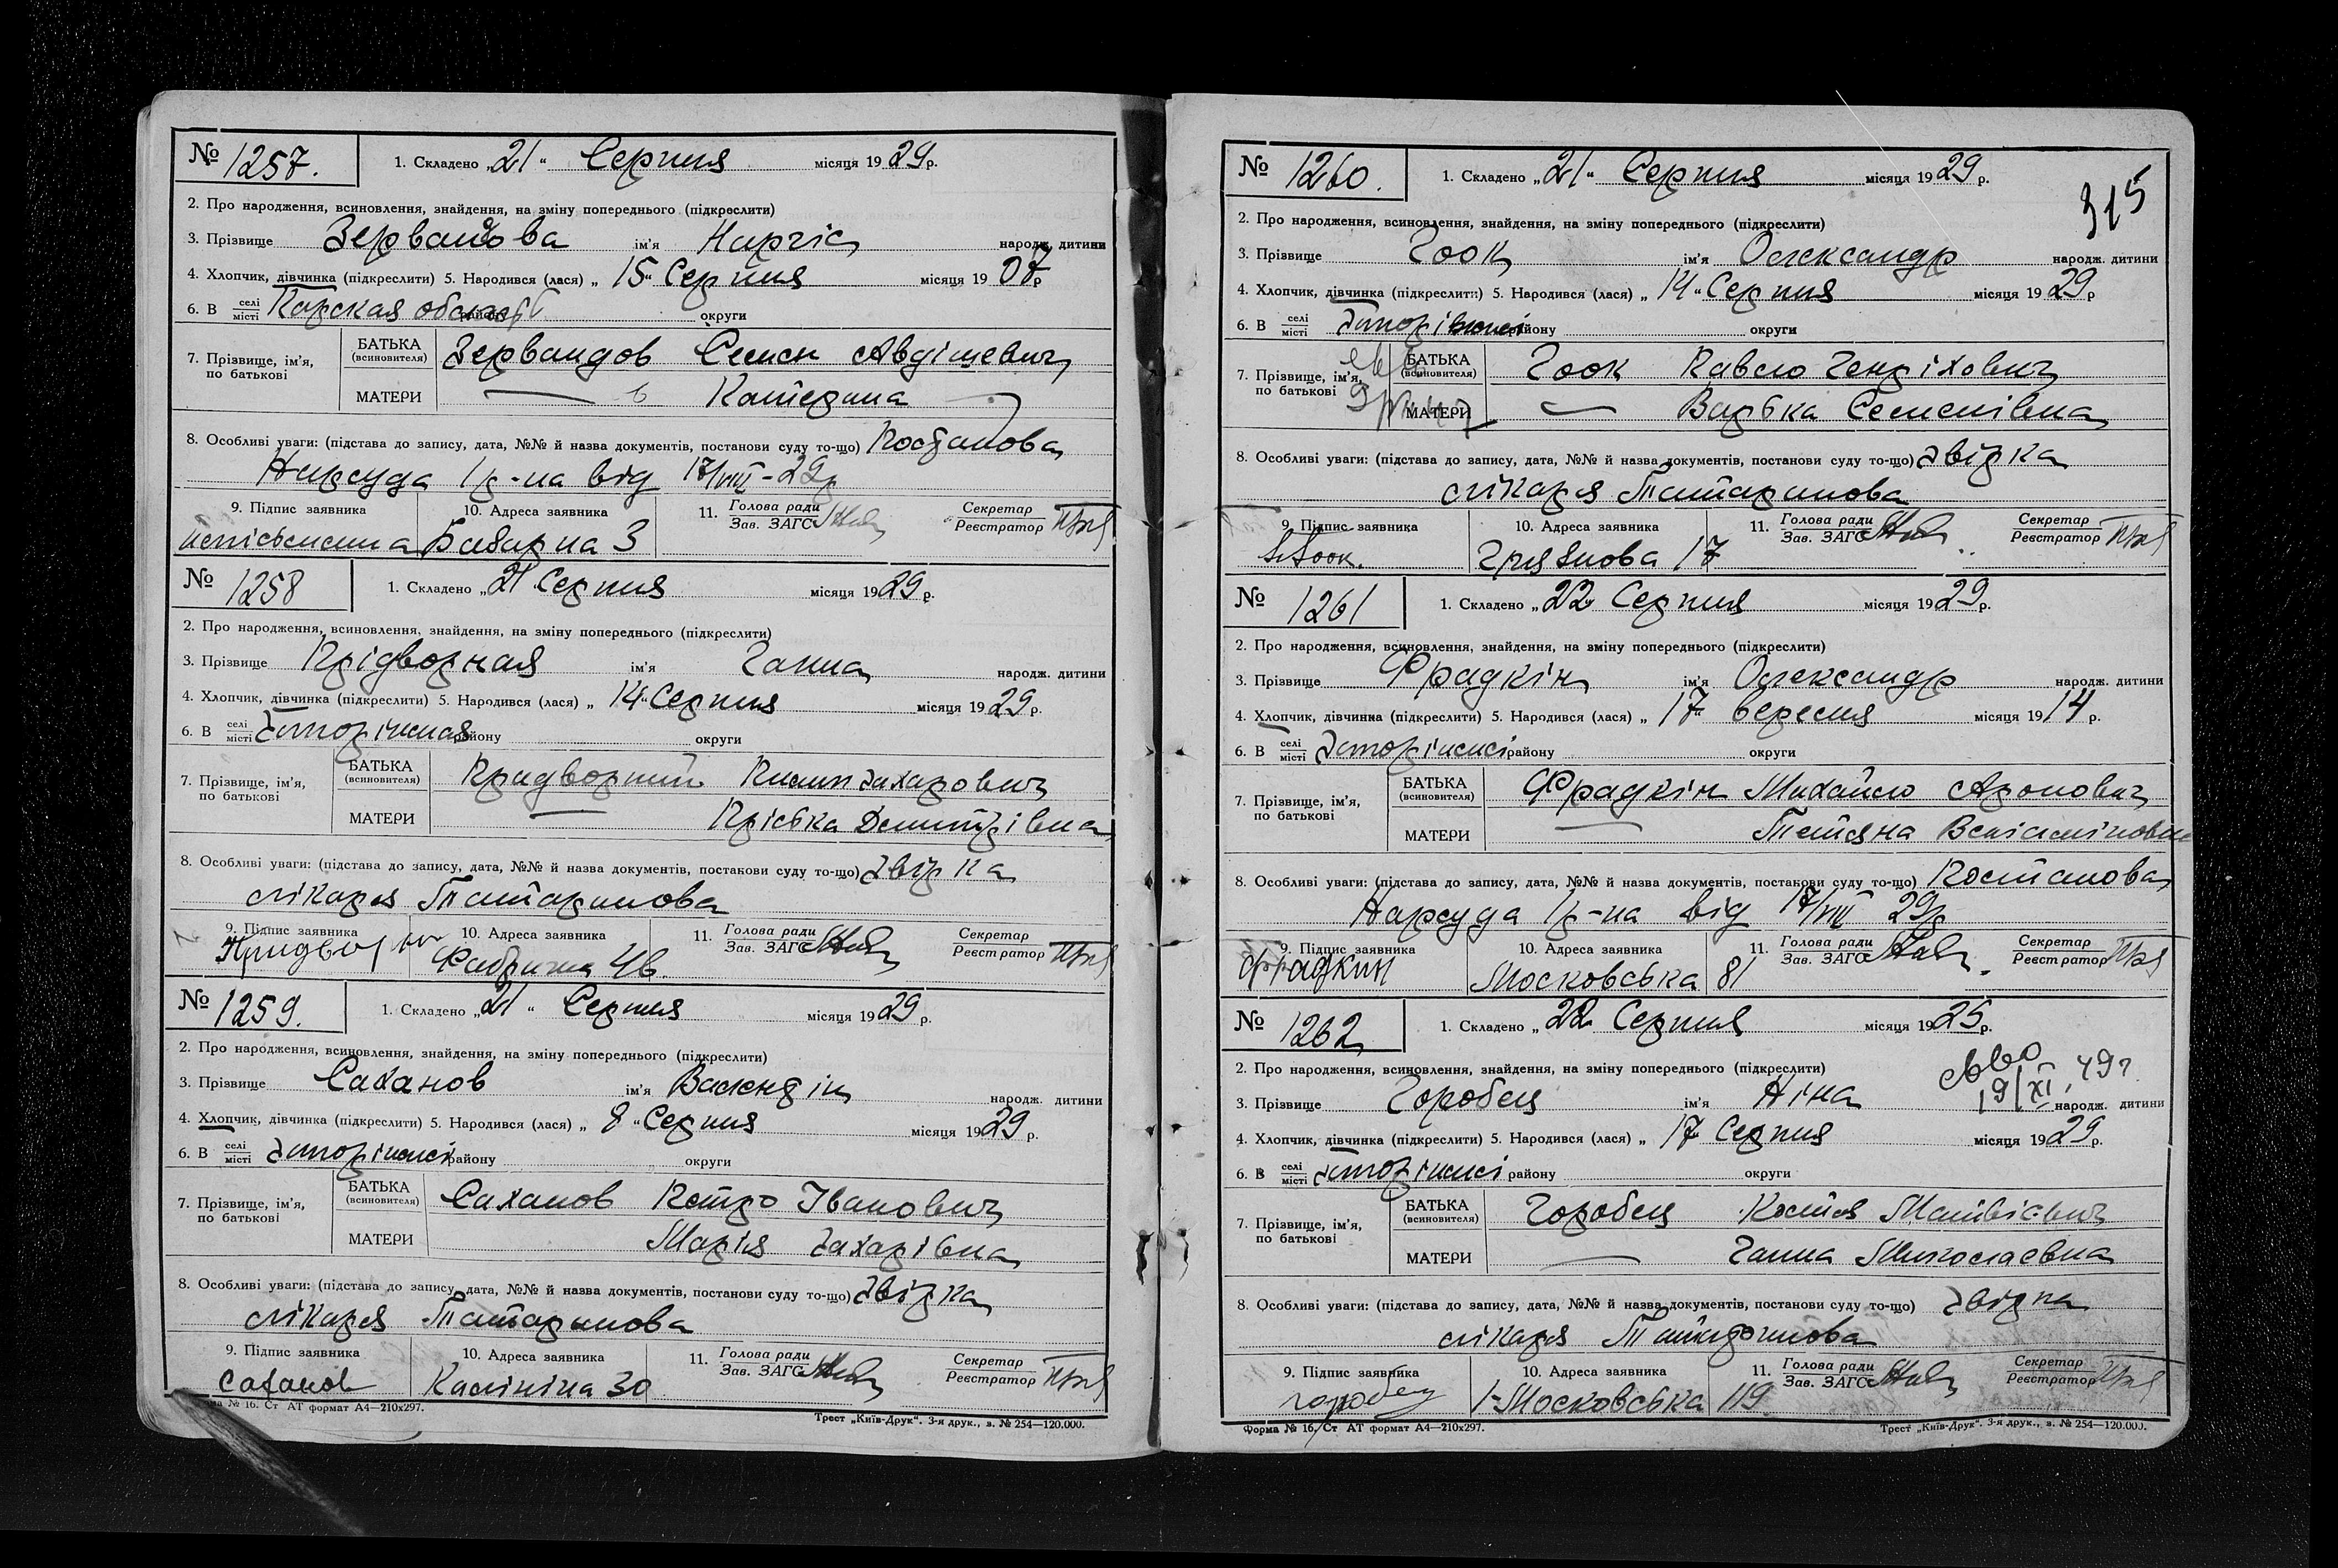 № 1257. 1. Складено „21“ Серпня місяця 1929 р.
2. Про народження, всиновлення, знайдення, на зміну попереднього (підкреслити)
3. Прізвище Зервандова ім'я Наргіс народж. дитини
4. Хлопчик, дівчинка (підкреслити) 5. Народився (лася) „15“ Серпня місяця 1907 р
6. В селі місті Карская району округи
7. Прізвище, ім'я, по батькові БАТЬКА (всиновителя) Зервандов Семен Авдішевич
МАТЕРИ — в Катерина —
8. Особливі уваги: (підстава до запису, дата, №№ й назва документів, постанови суду то-що) Постанова
Нарсуда 1 р-на від 17/VIII-29р
9. Підпис заявника 10. Адреса заявника 11. Голова ради Зав. ЗАГС Секретар Реєстратор
неписьменна Базарна 3
№ 1258 1. Складено „21 Серпня місяця 1929 р.
2. Про народження, всиновлення, знайдення, на зміну попереднього (підкреслити)
3. Прізвище Прідворная ім'я Ганна народж. дитини
4. Хлопчик, дівчинка (підкреслити) 5. Народився (лася) „14“ Серпня місяця 1929 р.
6. В селі місті Запоріжжя району округи
7. Прізвище, ім'я, по батькові БАТЬКА (всиновителя) Придворний Захарович
МАТЕРИ — Пріська Дмитрівна
8. Особливі уваги: (підстава до запису, дата, №№ й назва документів, постанови суду то-що) Звірка
лікаря Татаринова
9. Підпис заявника 10. Адреса заявника 11. Голова ради Зав. ЗАГС Секретар Реєстратор
Фабрична 46
№ 1259. 1. Складено „21“ Серпня місяця 1929 р.
2. Про народження, всиновлення, знайдення, на зміну попереднього (підкреслити)
3. Прізвище Саханов ім'я Валендін народж. дитини
4. Хлопчик, дівчинка (підкреслити) 5. Народився (лася) „8“ Серпня місяця 1929 р.
6. В селі місті Запоріжжі району округи
7. Прізвище, ім'я, по батькові БАТЬКА (всиновителя) Саханов Петро Іванович
МАТЕРИ Марія Захарівна
8. Особливі уваги: (підстава до запису, дата, №№ й назва документів, постанови суду то-що) Звірка
лікаря Татаринова
9. Підпис заявника 10. Адреса заявника 11. Голова ради Зав. ЗАГС Секретар Реєстратор
Саханов Калініна 30
№ 16. Ст АТ формат А4—210х297. Трест „Київ-Друк“. 3-я друк., з. № 254—120.000.
315
№ 1260. 1. Складено „21“ Серпня місяця 1929 р.
2. Про народження, всиновлення, знайдення, на зміну попереднього (підкреслити)
3. Прізвище Гоок ім'я Олександр народж. дитини
4. Хлопчик, дівчинка (підкреслити) 5. Народився (лася) „14“ Серпня місяця 1929 р
6. В селі місті Запоріжжі району округи
7. Прізвище, ім'я, по батькові БАТЬКА (всиновителя) Гоок Павло Гендріхович
МАТЕРИ — Варвка Семенівна
8. Особливі уваги: (підстава до запису, дата, №№ й назва документів, постанови суду то-що) Звірка
лікаря Татаринова
9. Підпис заявника 10. Адреса заявника 11. Голова ради Зав. ЗАГС Секретар Реєстратор
Грязнова 17
№ 1261 1. Складено „22 Серпня місяця 1929 р.
2. Про народження, всиновлення, знайдення, на зміну попереднього (підкреслити)
3. Прізвище Фрадкін ім'я Олександр народж. дитини
4. Хлопчик, дівчинка (підкреслити) 5. Народився (лася) „17“ вересня місяця 1914 р.
6. В селі місті Запоріжжі району округи
7. Прізвище, ім'я, по батькові БАТЬКА (всиновителя) Фрадкін Михайло Аронович
МАТЕРИ — Тетяна Веніаміновна
8. Особливі уваги: (підстава до запису, дата, №№ й назва документів, постанови суду то-що) Постанова
Нарсуда 1 р-на від 17/VIII 29р
9. Підпис заявника 10. Адреса заявника 11. Голова ради Зав. ЗАГС Секретар Реєстратор
Фрадкин Московська 81
№ 1262 1. Складено „22 Серпня місяця 1925 р.
2. Про народження, всиновлення, знайдення, на зміну попереднього (підкреслити)
19/XI 49 г
3. Прізвище Горобец ім'я Ніна народж. дитини
4. Хлопчик, дівчинка (підкреслити) 5. Народився (лася) „17 Серпня місяця 1929 р.
6. В селі місті Запоріжжі району округи
7. Прізвище, ім'я, по батькові БАТЬКА (всиновителя) Горобец Костя Матвієвич
МАТЕРИ — Ганна Миколаєвна
8. Особливі уваги: (підстава до запису, дата, №№ й назва документів, постанови суду то-що) Звірка
лікаря Татаринова
9. Підпис заявника 10. Адреса заявника 11. Голова ради Зав. ЗАГС Секретар Реєстратор
Горобец 1-Московська 119
Форма № 16, Ст АТ формат А4—210х297. Трест „Київ-Друк“. 3-я друк., з. № 254—120.000.